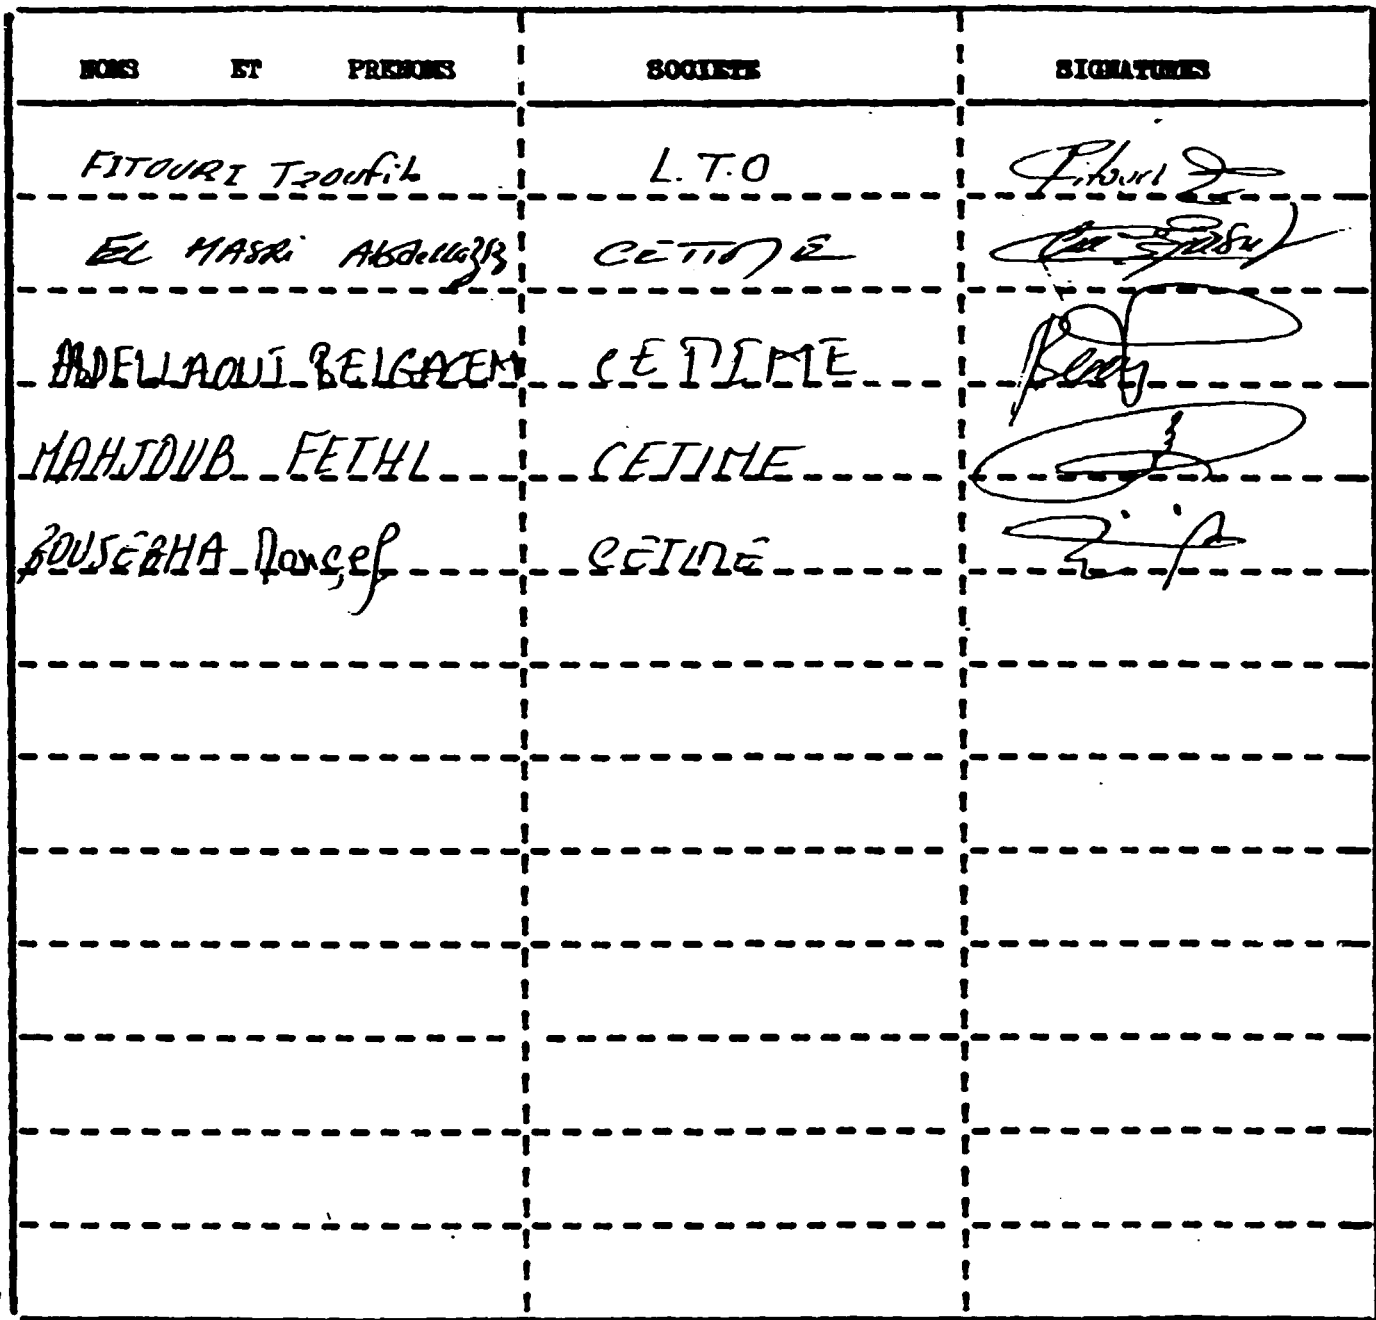 NOMS ET PRENOMS SOCIETE SIGNATURES
FITOURI Taoufik L.T.O Fitouri
EL MASRI Abdellaziz CETIME
ABDELLAOUI BELGACEM CETIME
MAHJOUB FETHI CETIME
BOUSEBHA Moncef CETIME